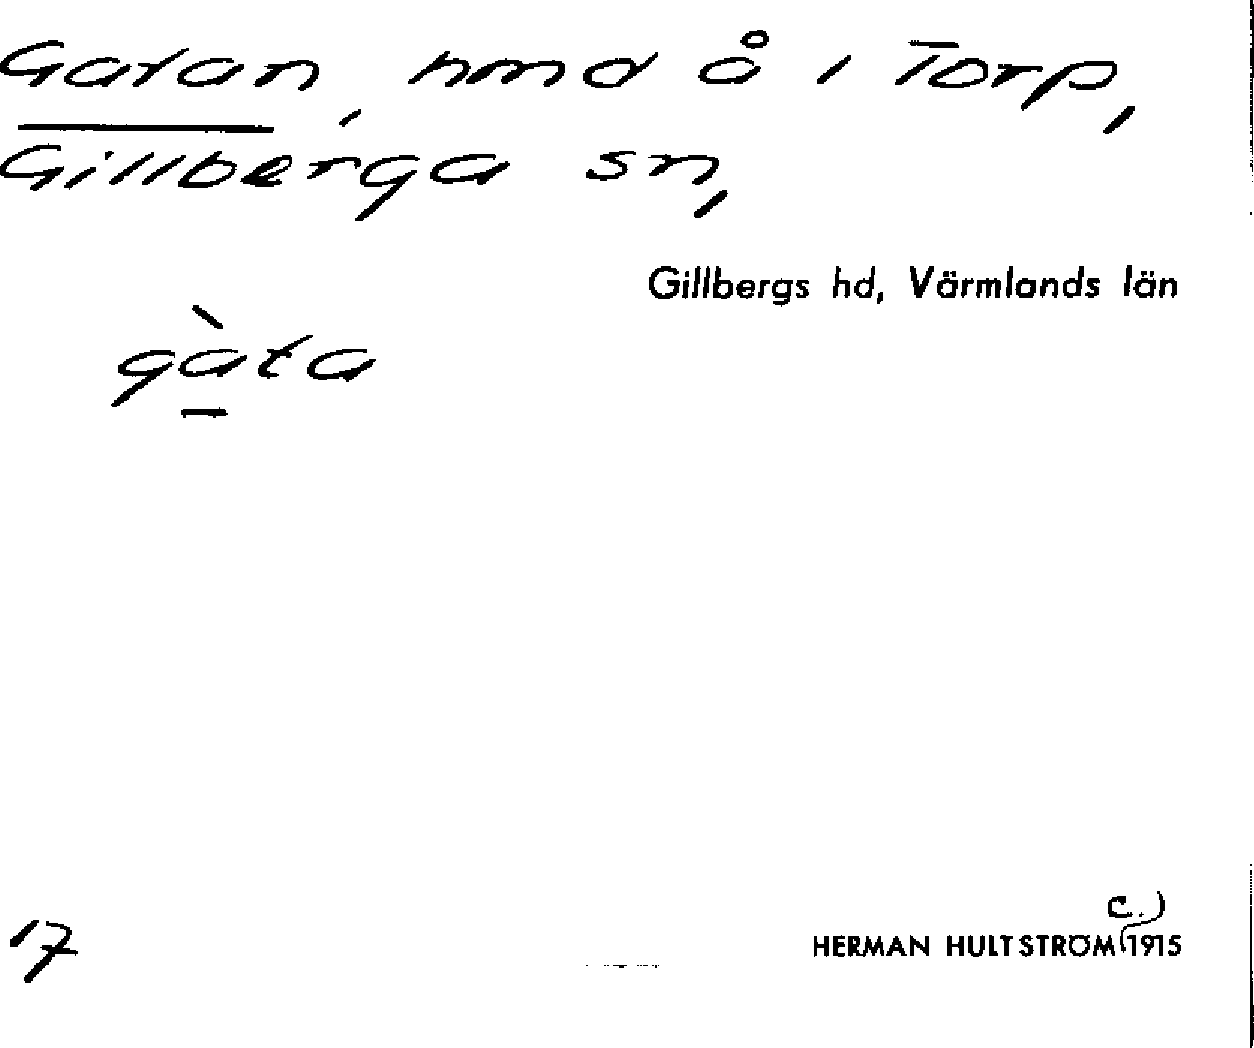 Gatan, hmd å i Torp,
Gillberga sn,
Gillbergs hd, Värmlands län
gàta
17
c.)
HERMAN HULTSTRÖM 1915